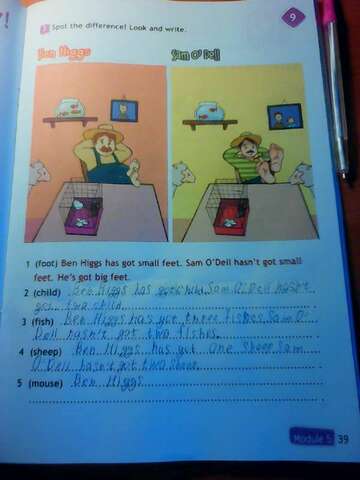 1 Spot the difference! Look and write.
9
Ben Higgs
Sam O' Dell
1 (foot) Ben Higgs has got small feet. Sam O'Dell hasn't got small
feet. He's got big feet.
2 (child) Ben Higgs has got child, Sam O'Dell hasn't
got two child.
3 (fish) Ben Higgs has got three fishes, Sam O'
Dell hasn't got two fishes.
4 (sheep) Ben Higgs has got one sheep Sam
O'Dell hasn't got two sheep.
5 (mouse) Ben Higgs
Module 5
39